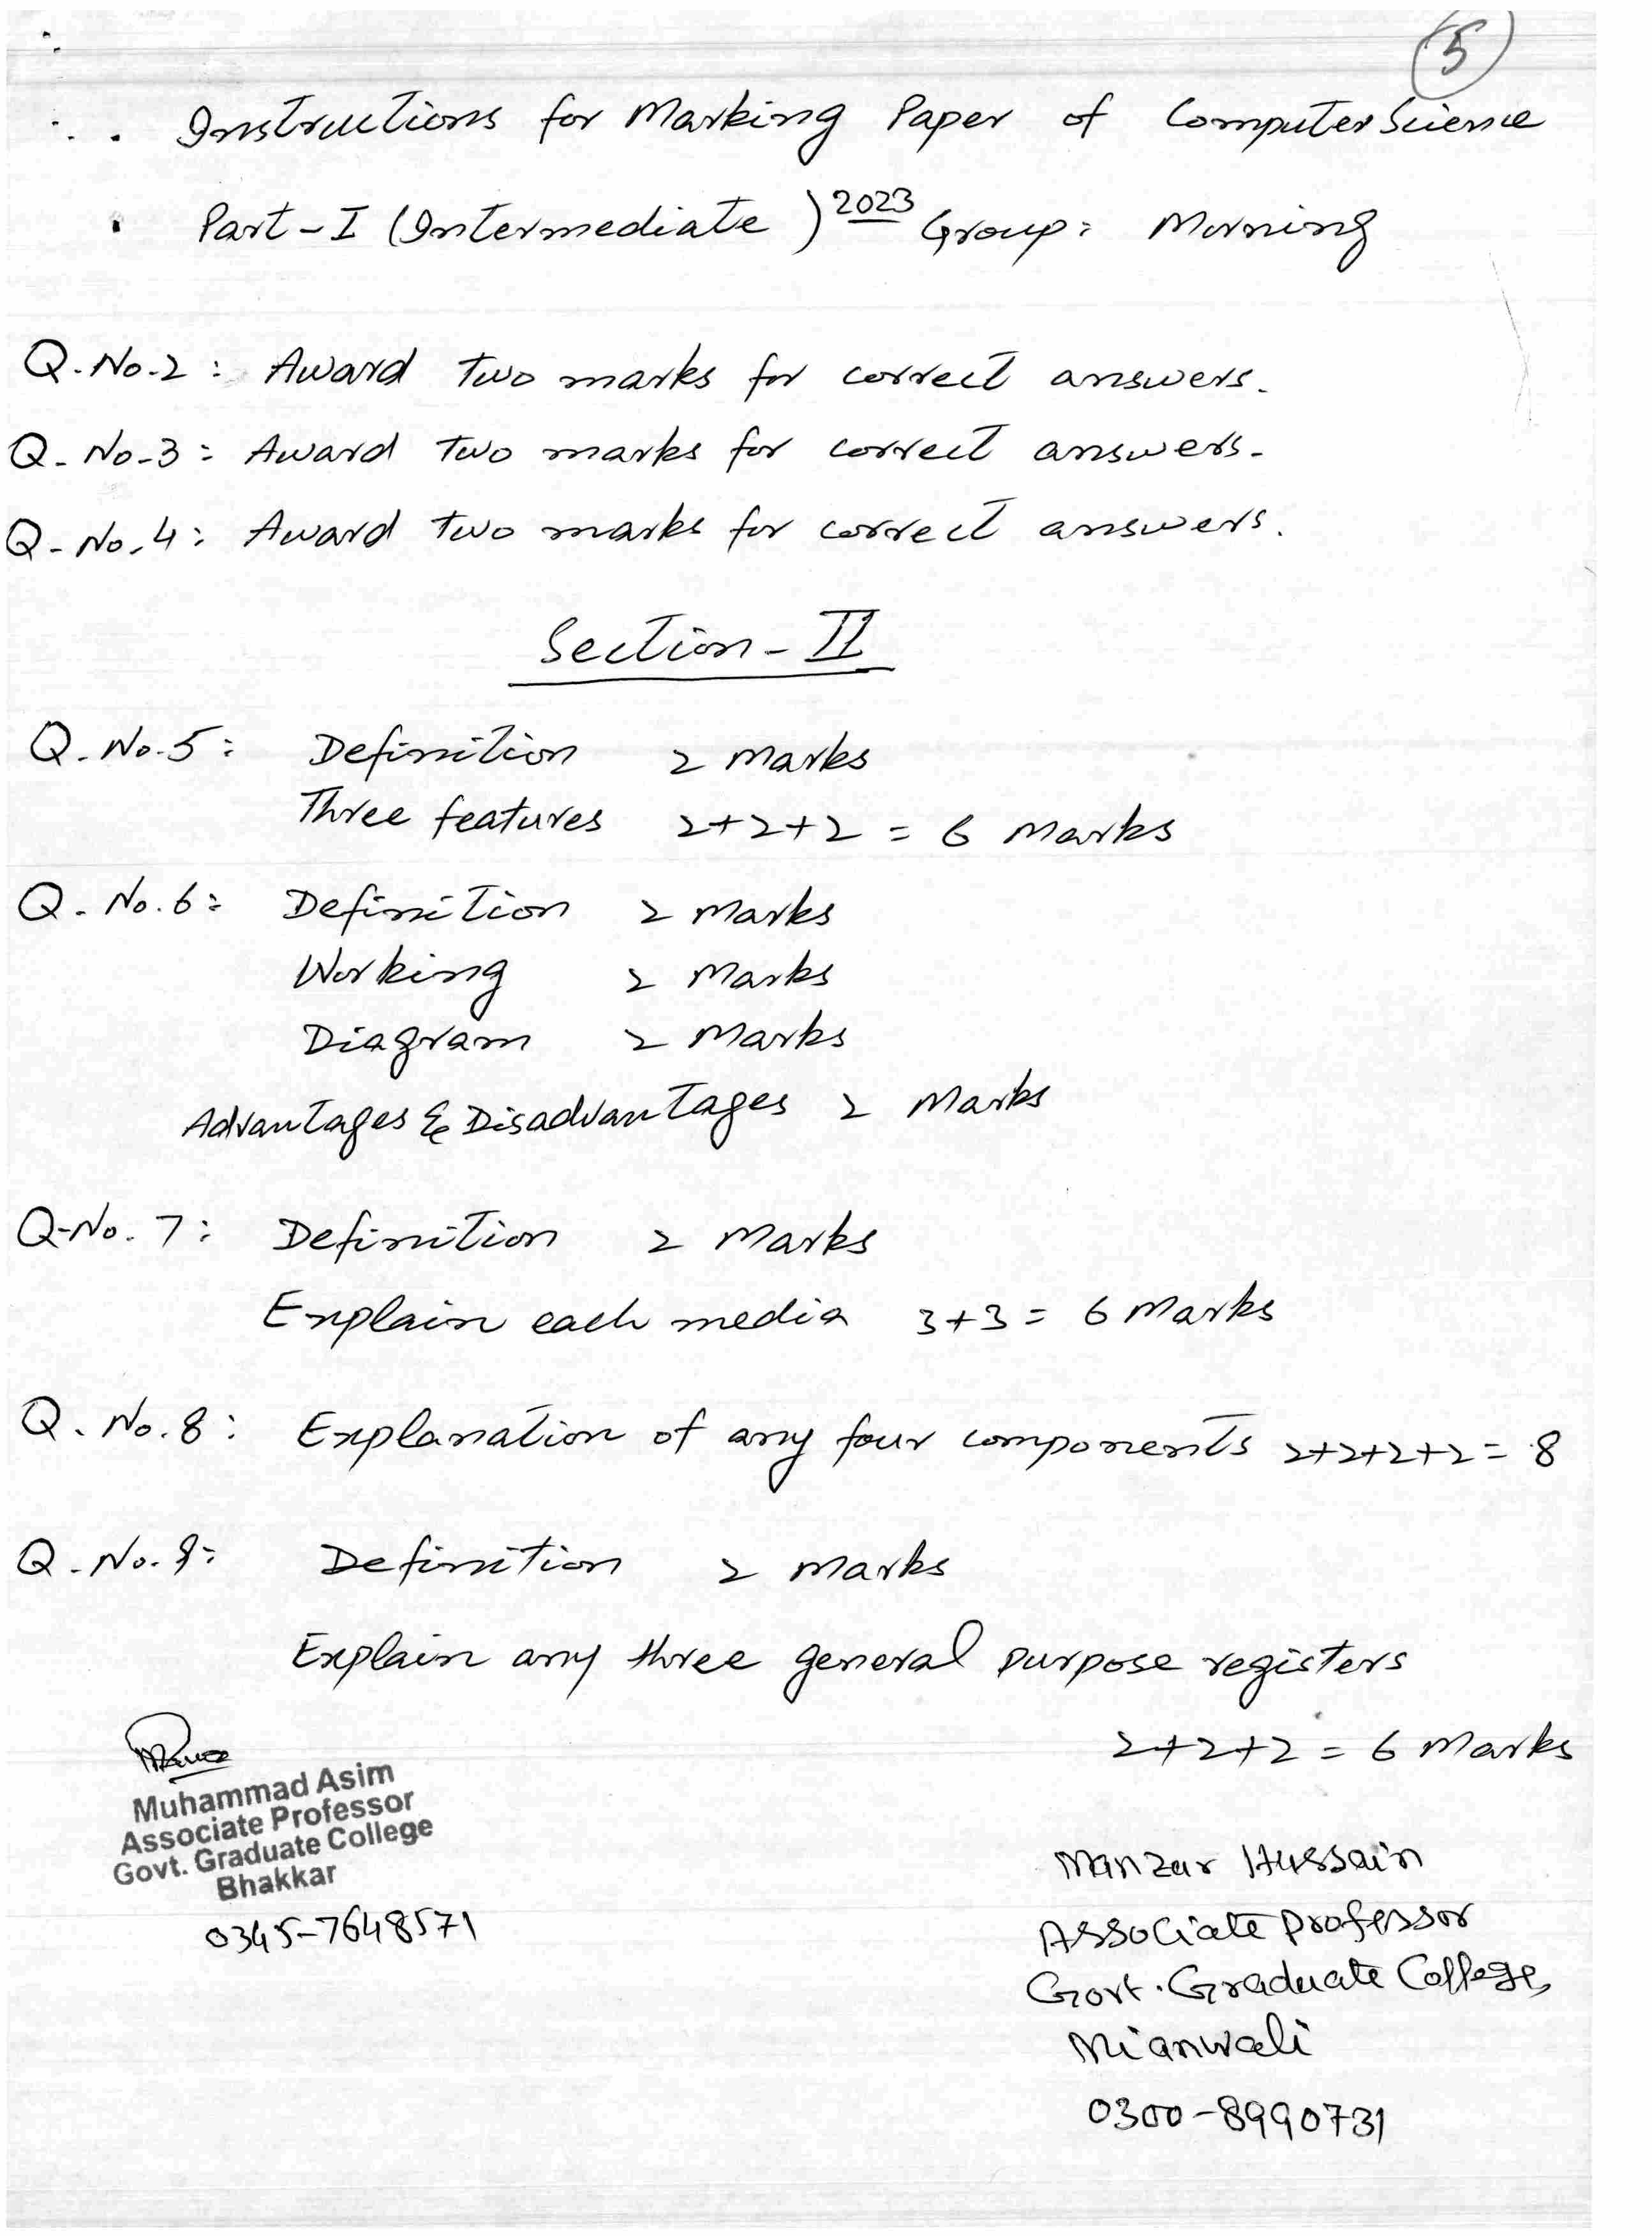 5
Instructions for Marking Paper of Computer Science
Part-I (Intermediate) 2023 Group: Morning
Q.No.2: Award Two marks for correct answers.
Q.No.3: Award Two marks for correct answers.
Q.No.4: Award Two marks for correct answers.
Section-II
Q.No.5: Definition 2 Marks
Three features 2+2+2 = 6 Marks
Q.No.6: Definition 2 Marks
Working 2 Marks
Diagram 2 Marks
Advantages & Disadvantages 2 Marks
Q.No.7: Definition 2 Marks
Explain each media 3+3 = 6 Marks
Q.No.8: Explanation of any four components 2+2+2+2 = 8
Q.No.9: Definition 2 Marks
Explain any three general purpose registers
2+2+2 = 6 Marks
Muhammad Asim
Associate Professor
Govt. Graduate College
Bhakkar
0345-7648571
Manzar Hussain
Associate Professor
Govt. Graduate College,
Mianwali
0300-8990731